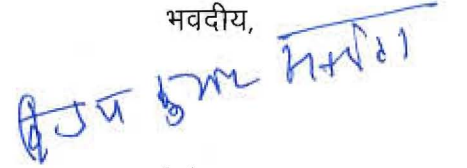 भवदीय,
विजय कुमार मल्होत्रा